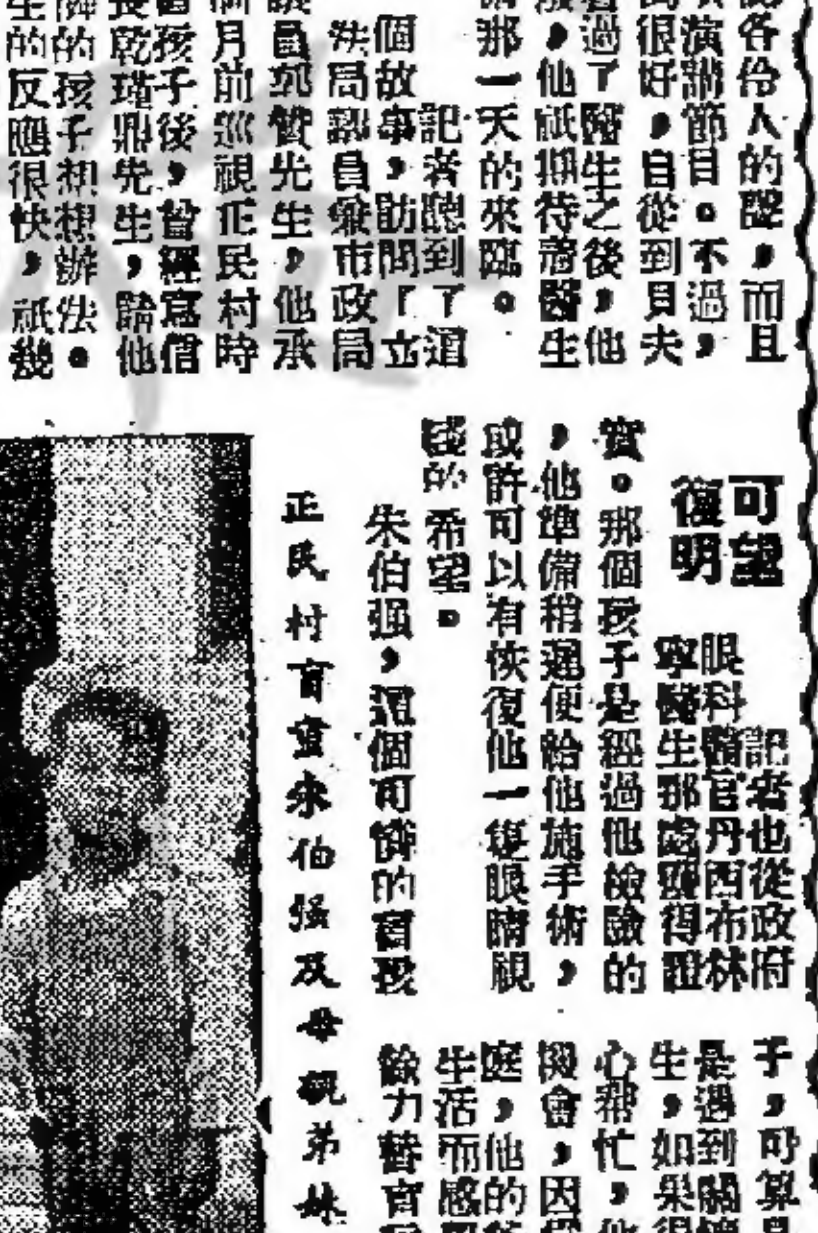 各伶人的聲,而且
演講節目。不過,
很好,自從到貝夫
過了醫生之後,他
,他祇期待着醫生
那一天的來臨。
記者聽到了這
個故事,訪問「立
法局議員兼市政局
員 贊先生,他承
月前巡視正民村時
孩子後,曾經寫信
乾瑾鼎先生,請他
的孩子想想辦法。
的反應很快,祇幾
可望
復明
記者也從政府
眼科醫官丹西布林
寧醫生那處獲得證
實。那個孩子是經過他檢驗的
,他準備稍遲便給他施手術,
或許可以有恢復他一隻眼睛視
綫的希望。
朱伯强,這個可憐的盲孩
正民村盲童朱伯强及母親弟妹
子,可算
是遇到
生,如果
心幫忙,
機會,因
庭,他的
生活而感
餘力替盲